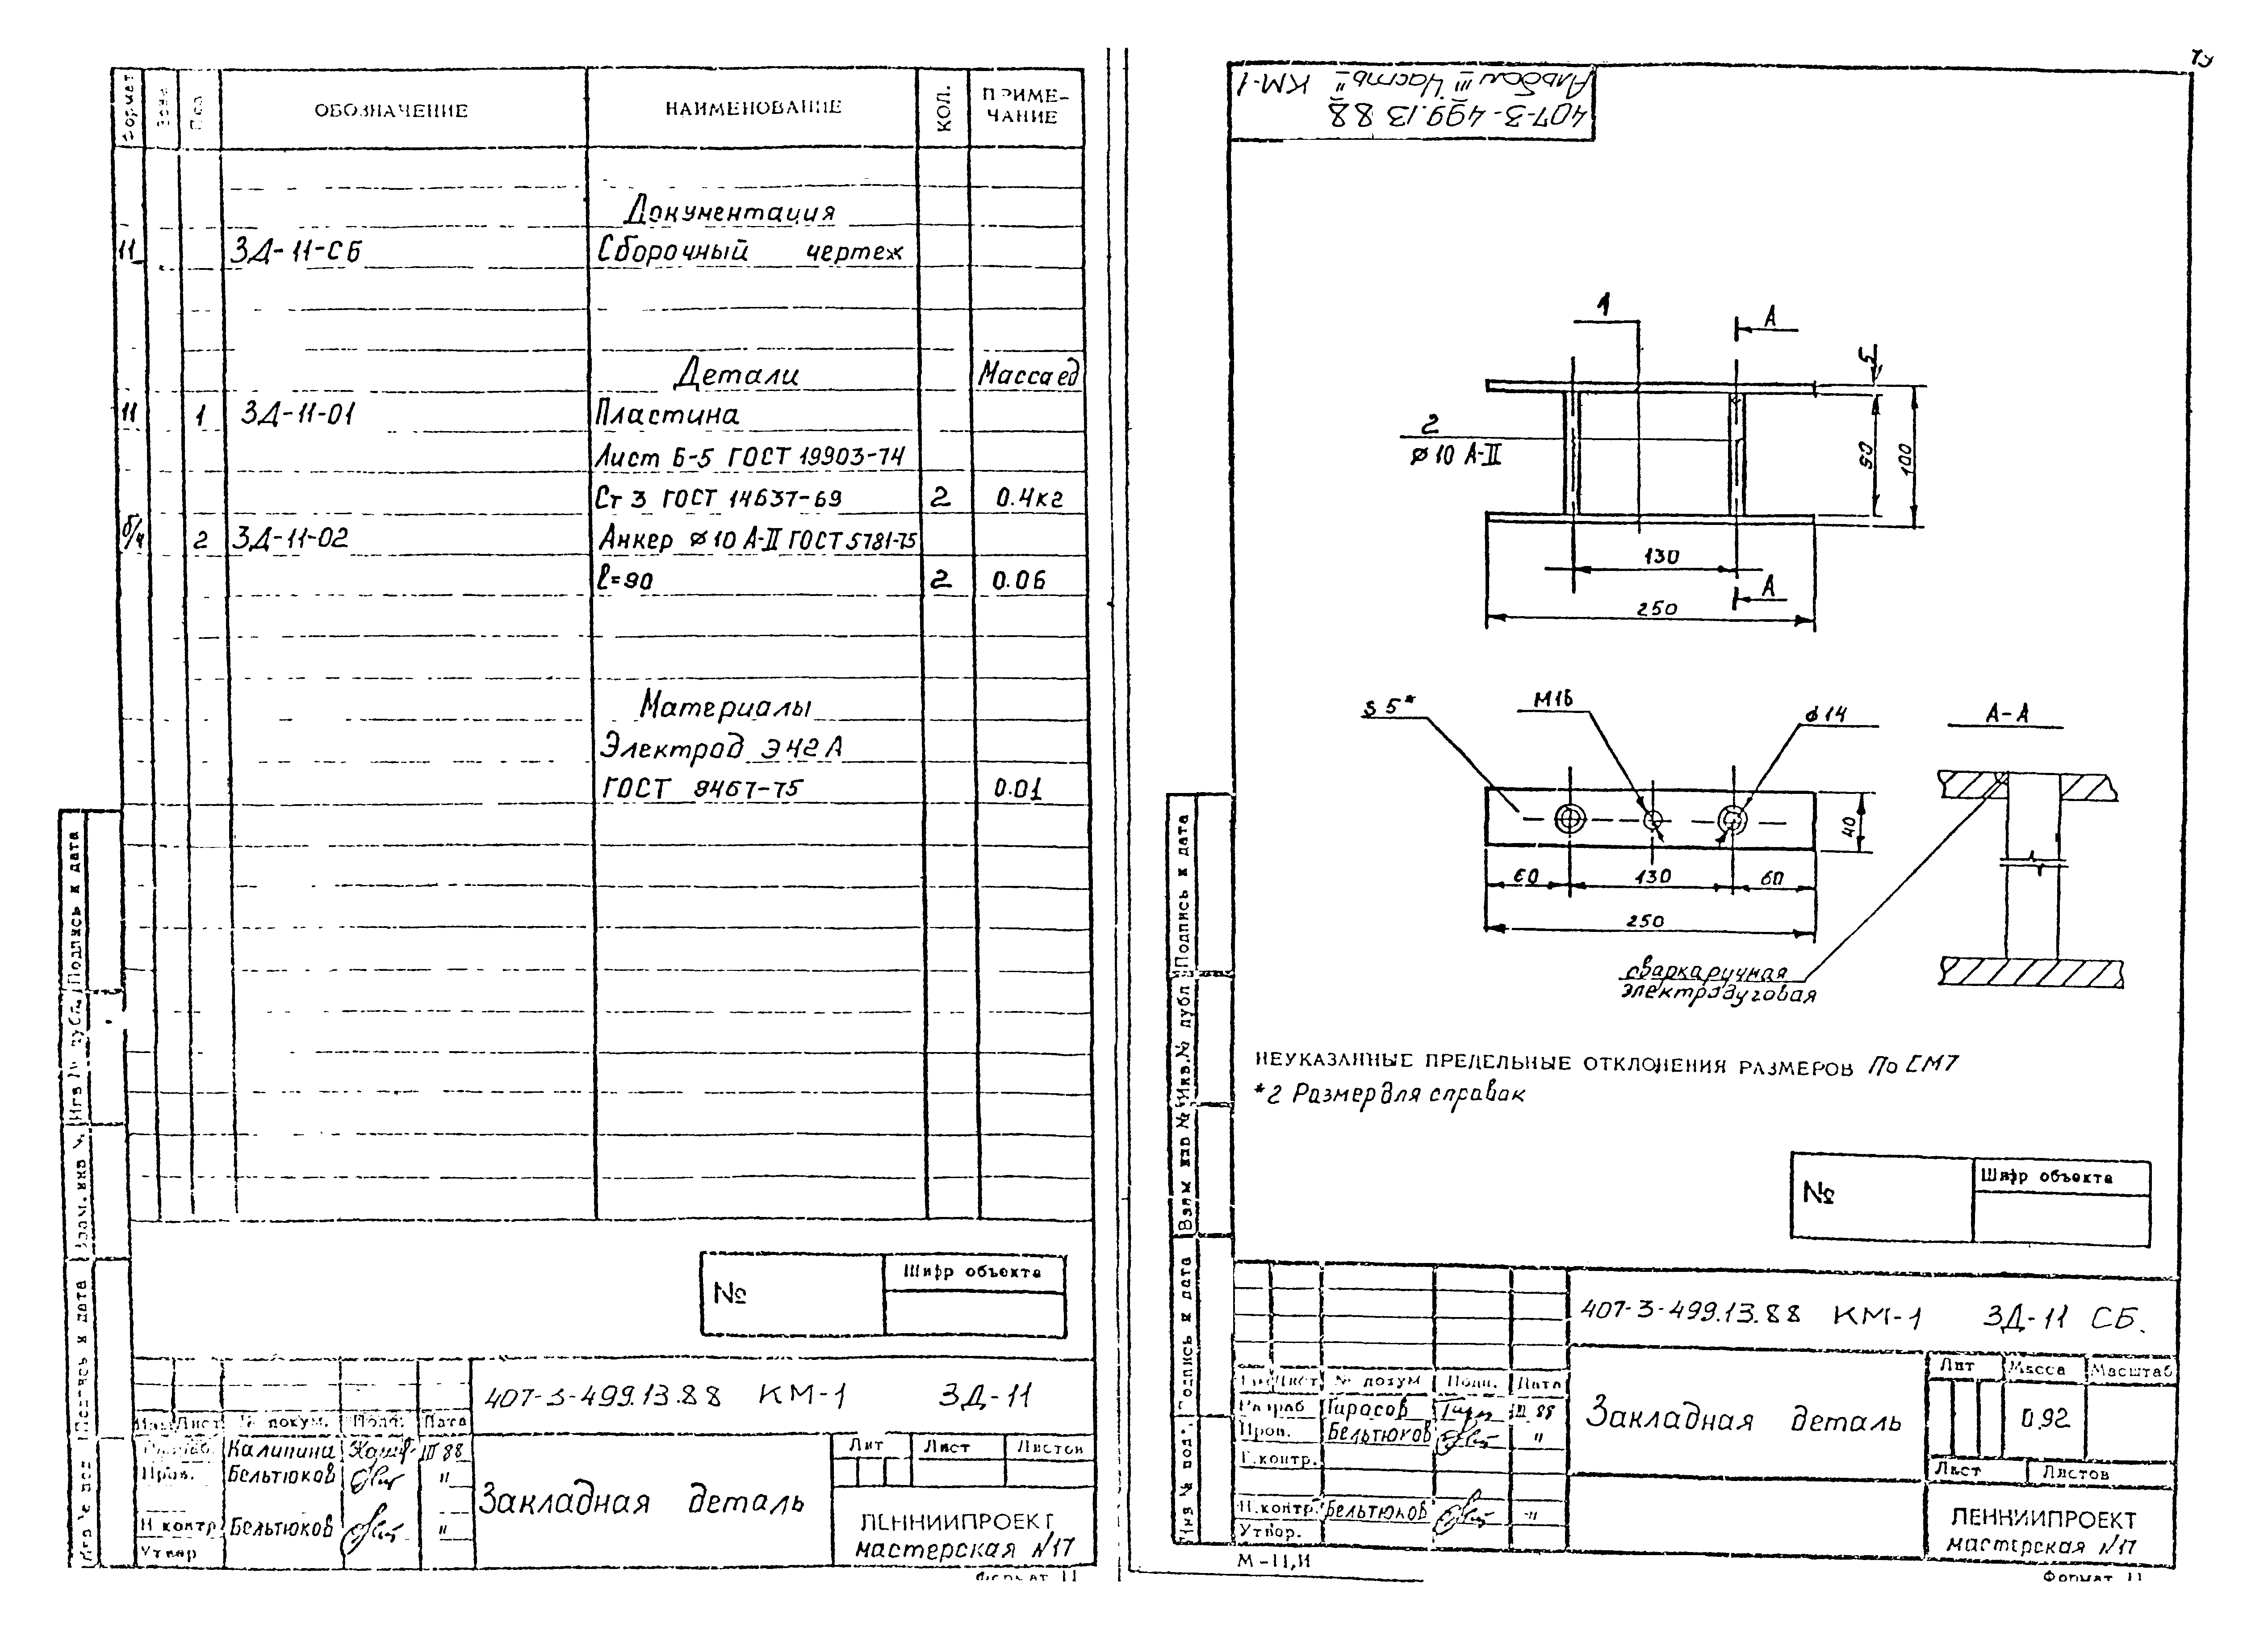 Формат
Зона
Поз
ОБОЗНАЧЕНИЕ
НАИМЕНОВАНИЕ
КОЛ.
ПРИМЕ-
ЧАНИЕ
Документация
11 ЗД-11-СБ Сборочный чертеж
Детали Масса ед
11 1 ЗД-11-01 Пластина
Лист Б-5 ГОСТ 19903-74
Ст 3 ГОСТ 14637-69 2 0.4кг
б/ч 2 ЗД-11-02 Анкер ø10 А-II ГОСТ 5781-75
ℓ=90 2 0.06
Материалы
Электрод Э42А
ГОСТ 9467-75 0.01
Подпись и дата
Инв № дубл.
Взам.инв №
Подпись и дата
Инв № под
№
Шифр объекта
407-3-499.13.88 КМ-1 ЗД-11
Изм Лист № докум. Подп. Дата
Разраб. Калинина III 88
Пров. Бельтюков "
Н контр Бельтюков "
Утвер
Закладная деталь
Лит Лист Листов
ЛЕННИИПРОЕКТ
мастерская №17
Формат 11
407-3-499.13 88
Альбом III Часть II КМ-1
1
А
5
2
ø10 А-II
90
100
130
А
250
S 5*
М16
ø14
А-А
40
60 130 60
250
сварка ручная
электродуговая
НЕУКАЗАННЫЕ ПРЕДЕЛЬНЫЕ ОТКЛОНЕНИЯ РАЗМЕРОВ По СМ7
*2 Размер для справок
№
Шифр объекта
Подпись и дата
Инв.№ дубл
Взам инв №
Подпись и дата
Инв № под.
407-3-499.13.88 КМ-1 ЗД-11 СБ.
Изм Лист № докум Подп. Дата
Разраб Тарасов III 88
Пров. Бельтюков "
Т.контр.
Н.контр. Бельтюков "
Утвер.
Закладная деталь
Лит Масса Масштаб
0.92
Лист Листов
ЛЕННИИПРОЕКТ
мастерская №17
М-11,И
Формат 11